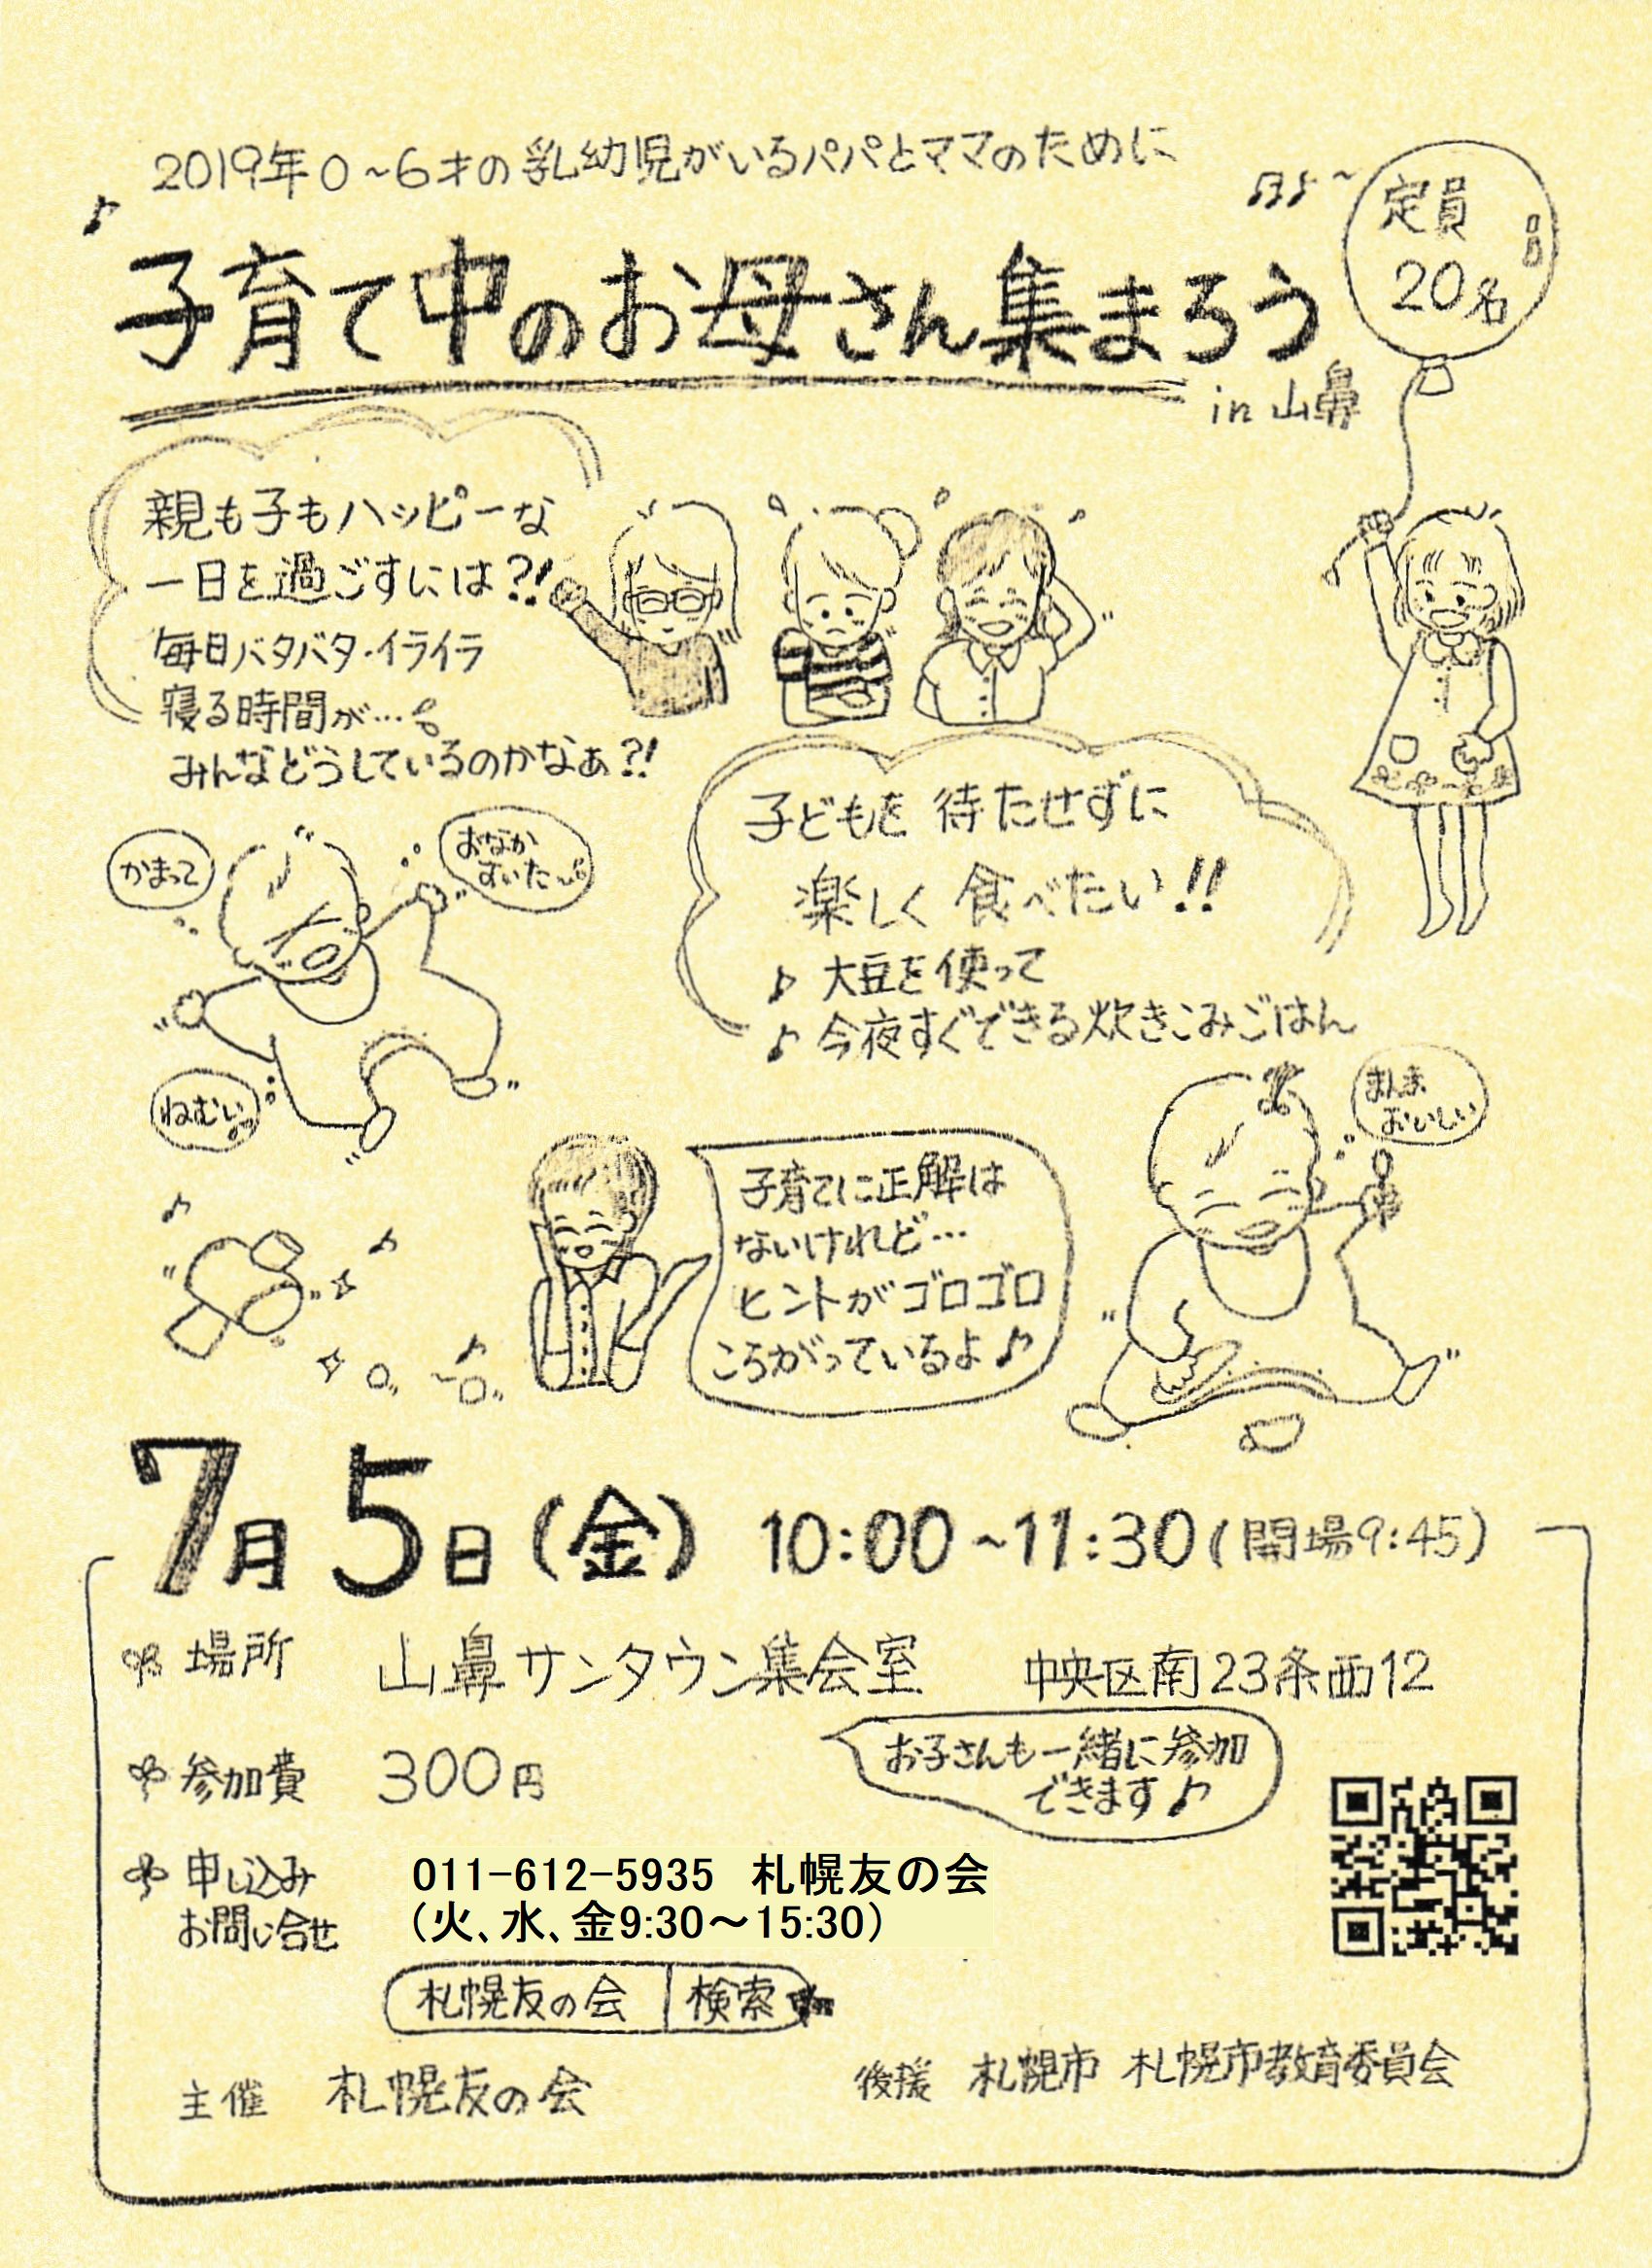 2019年0~6才の乳幼児がいるパパとママのために
子育て中のお母さん集まろう
in 山鼻
定員
20名
親も子もハッピーな
一日を過ごすには?!
毎日バタバタ・イライラ
寝る時間が…
みんなどうしているのかなぁ?!
かまって
おなか
すいた~
ねむい
子どもを 待たせずに
楽しく 食べたい!!
♪ 大豆を使って
♪ 今夜すぐできる炊きこみごはん
まんま
おいしい
子育てに正解は
ないけれど…
ヒントがゴロゴロ
ころがっているよ♪
7月5日(金) 10:00~11:30(開場9:45)
場所 山鼻サンタウン集会室 中央区南23条西12
お子さんも一緒に参加
できます♪
参加費 300円
申し込み
お問い合せ
011-612-5935 札幌友の会
(火、水、金9:30~15:30)
札幌友の会 検索
主催 札幌友の会 後援 札幌市 札幌市教育委員会